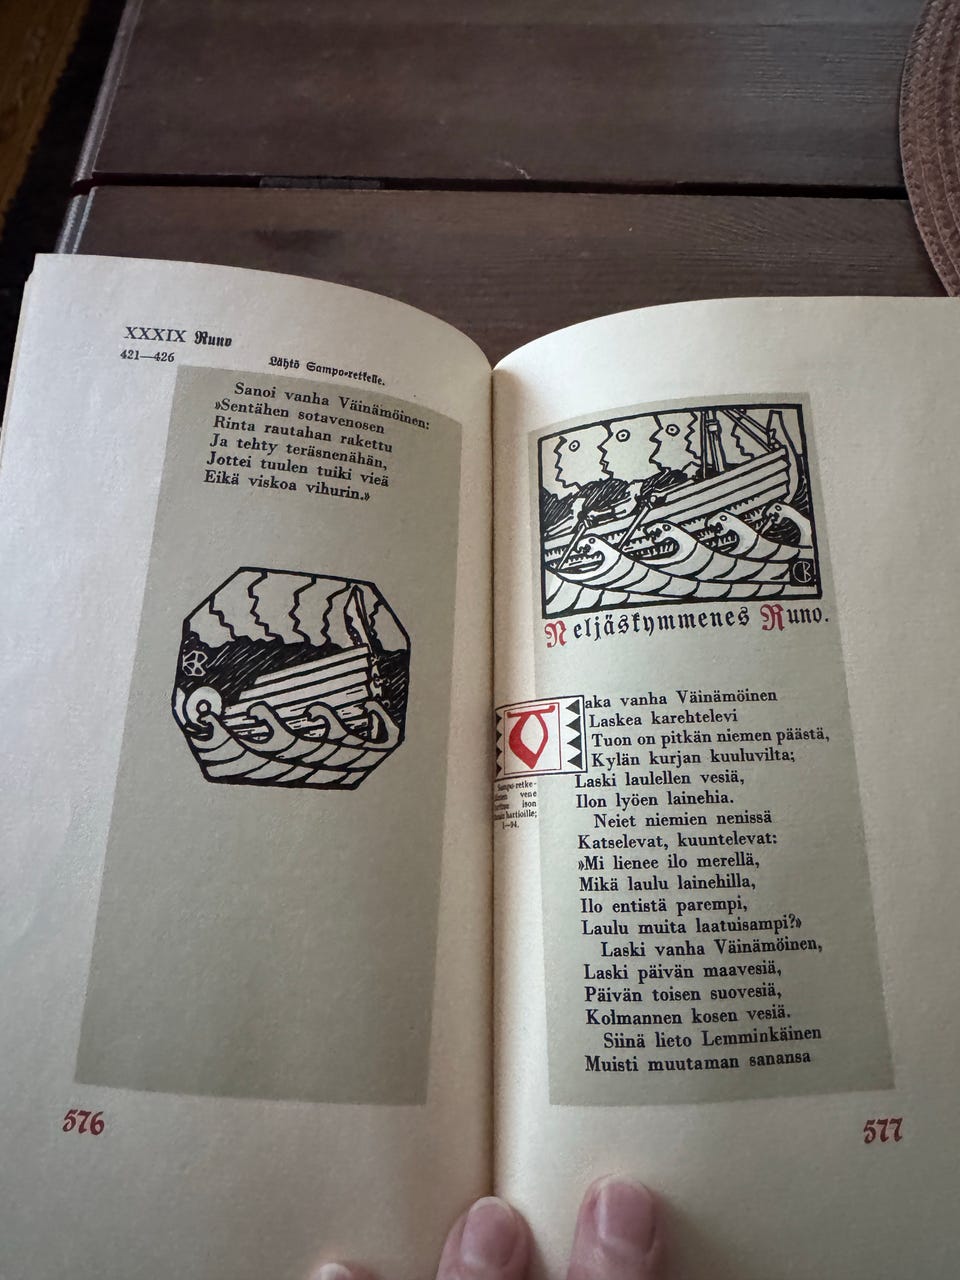 XXXIX Runo
421—426
Lähtö Sampo-retkelle.
Sanoi vanha Väinämöinen:
»Sentähen sotavenosen
Rinta rautahan rakettu
Ja tehty teräsnenähän,
Jottei tuulen tuiki vieä
Eikä viskoa vihurin.»
576
Neljäskymmenes Runo.
Vaka vanha Väinämöinen
Laskea karehtelevi
Tuon on pitkän niemen päästä,
Kylän kurjan kuuluvilta;
Laski laulellen vesiä,
Ilon lyöen lainehia.
Sampo-retke-
vene
ison
hartioille;
1—94.
Neiet niemien nenissä
Katselevat, kuuntelevat:
»Mi lienee ilo merellä,
Mikä laulu lainehilla,
Ilo entistä parempi,
Laulu muita laatuisampi?»
Laski vanha Väinämöinen,
Laski päivän maavesiä,
Päivän toisen suovesiä,
Kolmannen kosen vesiä.
Siinä lieto Lemminkäinen
Muisti muutaman sanansa
577